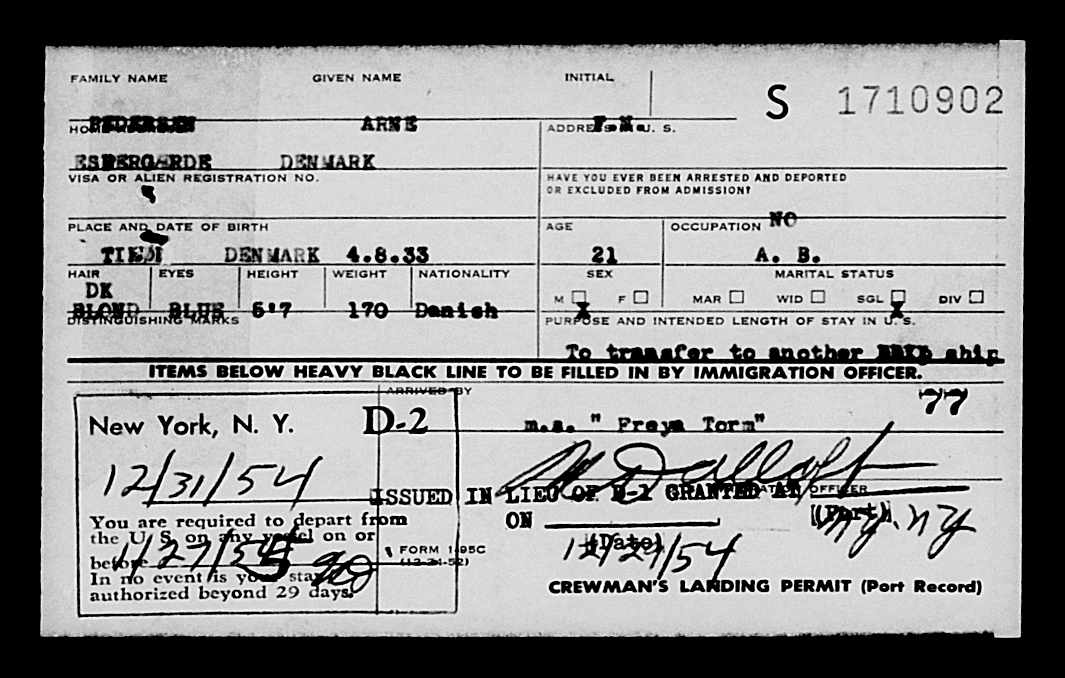 FAMILY NAME GIVEN NAME INITIAL
S 1710902
PEDERSEN ARNE
HOME ADDRESS IN U. S.
ESPERGÆRDE DENMARK
VISA OR ALIEN REGISTRATION NO.
HAVE YOU EVER BEEN ARRESTED AND DEPORTED
OR EXCLUDED FROM ADMISSION?
NO
PLACE AND DATE OF BIRTH AGE OCCUPATION
DENMARK 4.8.33 21 A. B.
HAIR EYES HEIGHT WEIGHT NATIONALITY SEX MARITAL STATUS
DK
BLOND BLUE 5'7 170 Danish
M X F MAR WID SGL X DIV
DISTINGUISHING MARKS
PURPOSE AND INTENDED LENGTH OF STAY IN U. S.
To transfer to another ship
ITEMS BELOW HEAVY BLACK LINE TO BE FILLED IN BY IMMIGRATION OFFICER.
ARRIVED BY
77
New York, N. Y. D-2
m.s. " Freya Torm"
12/31/54
OFFICER
ISSUED IN LIEU OF D-1 GRANTED AT
(Port)
NY. NY
ON
(Date)
12/29/54
You are required to depart from
the U. S. on any vessel on or
before 1/27/55
In no event is your stay
authorized beyond 29 days.
FORM I-95C
(12-24-52)
CREWMAN'S LANDING PERMIT (Port Record)